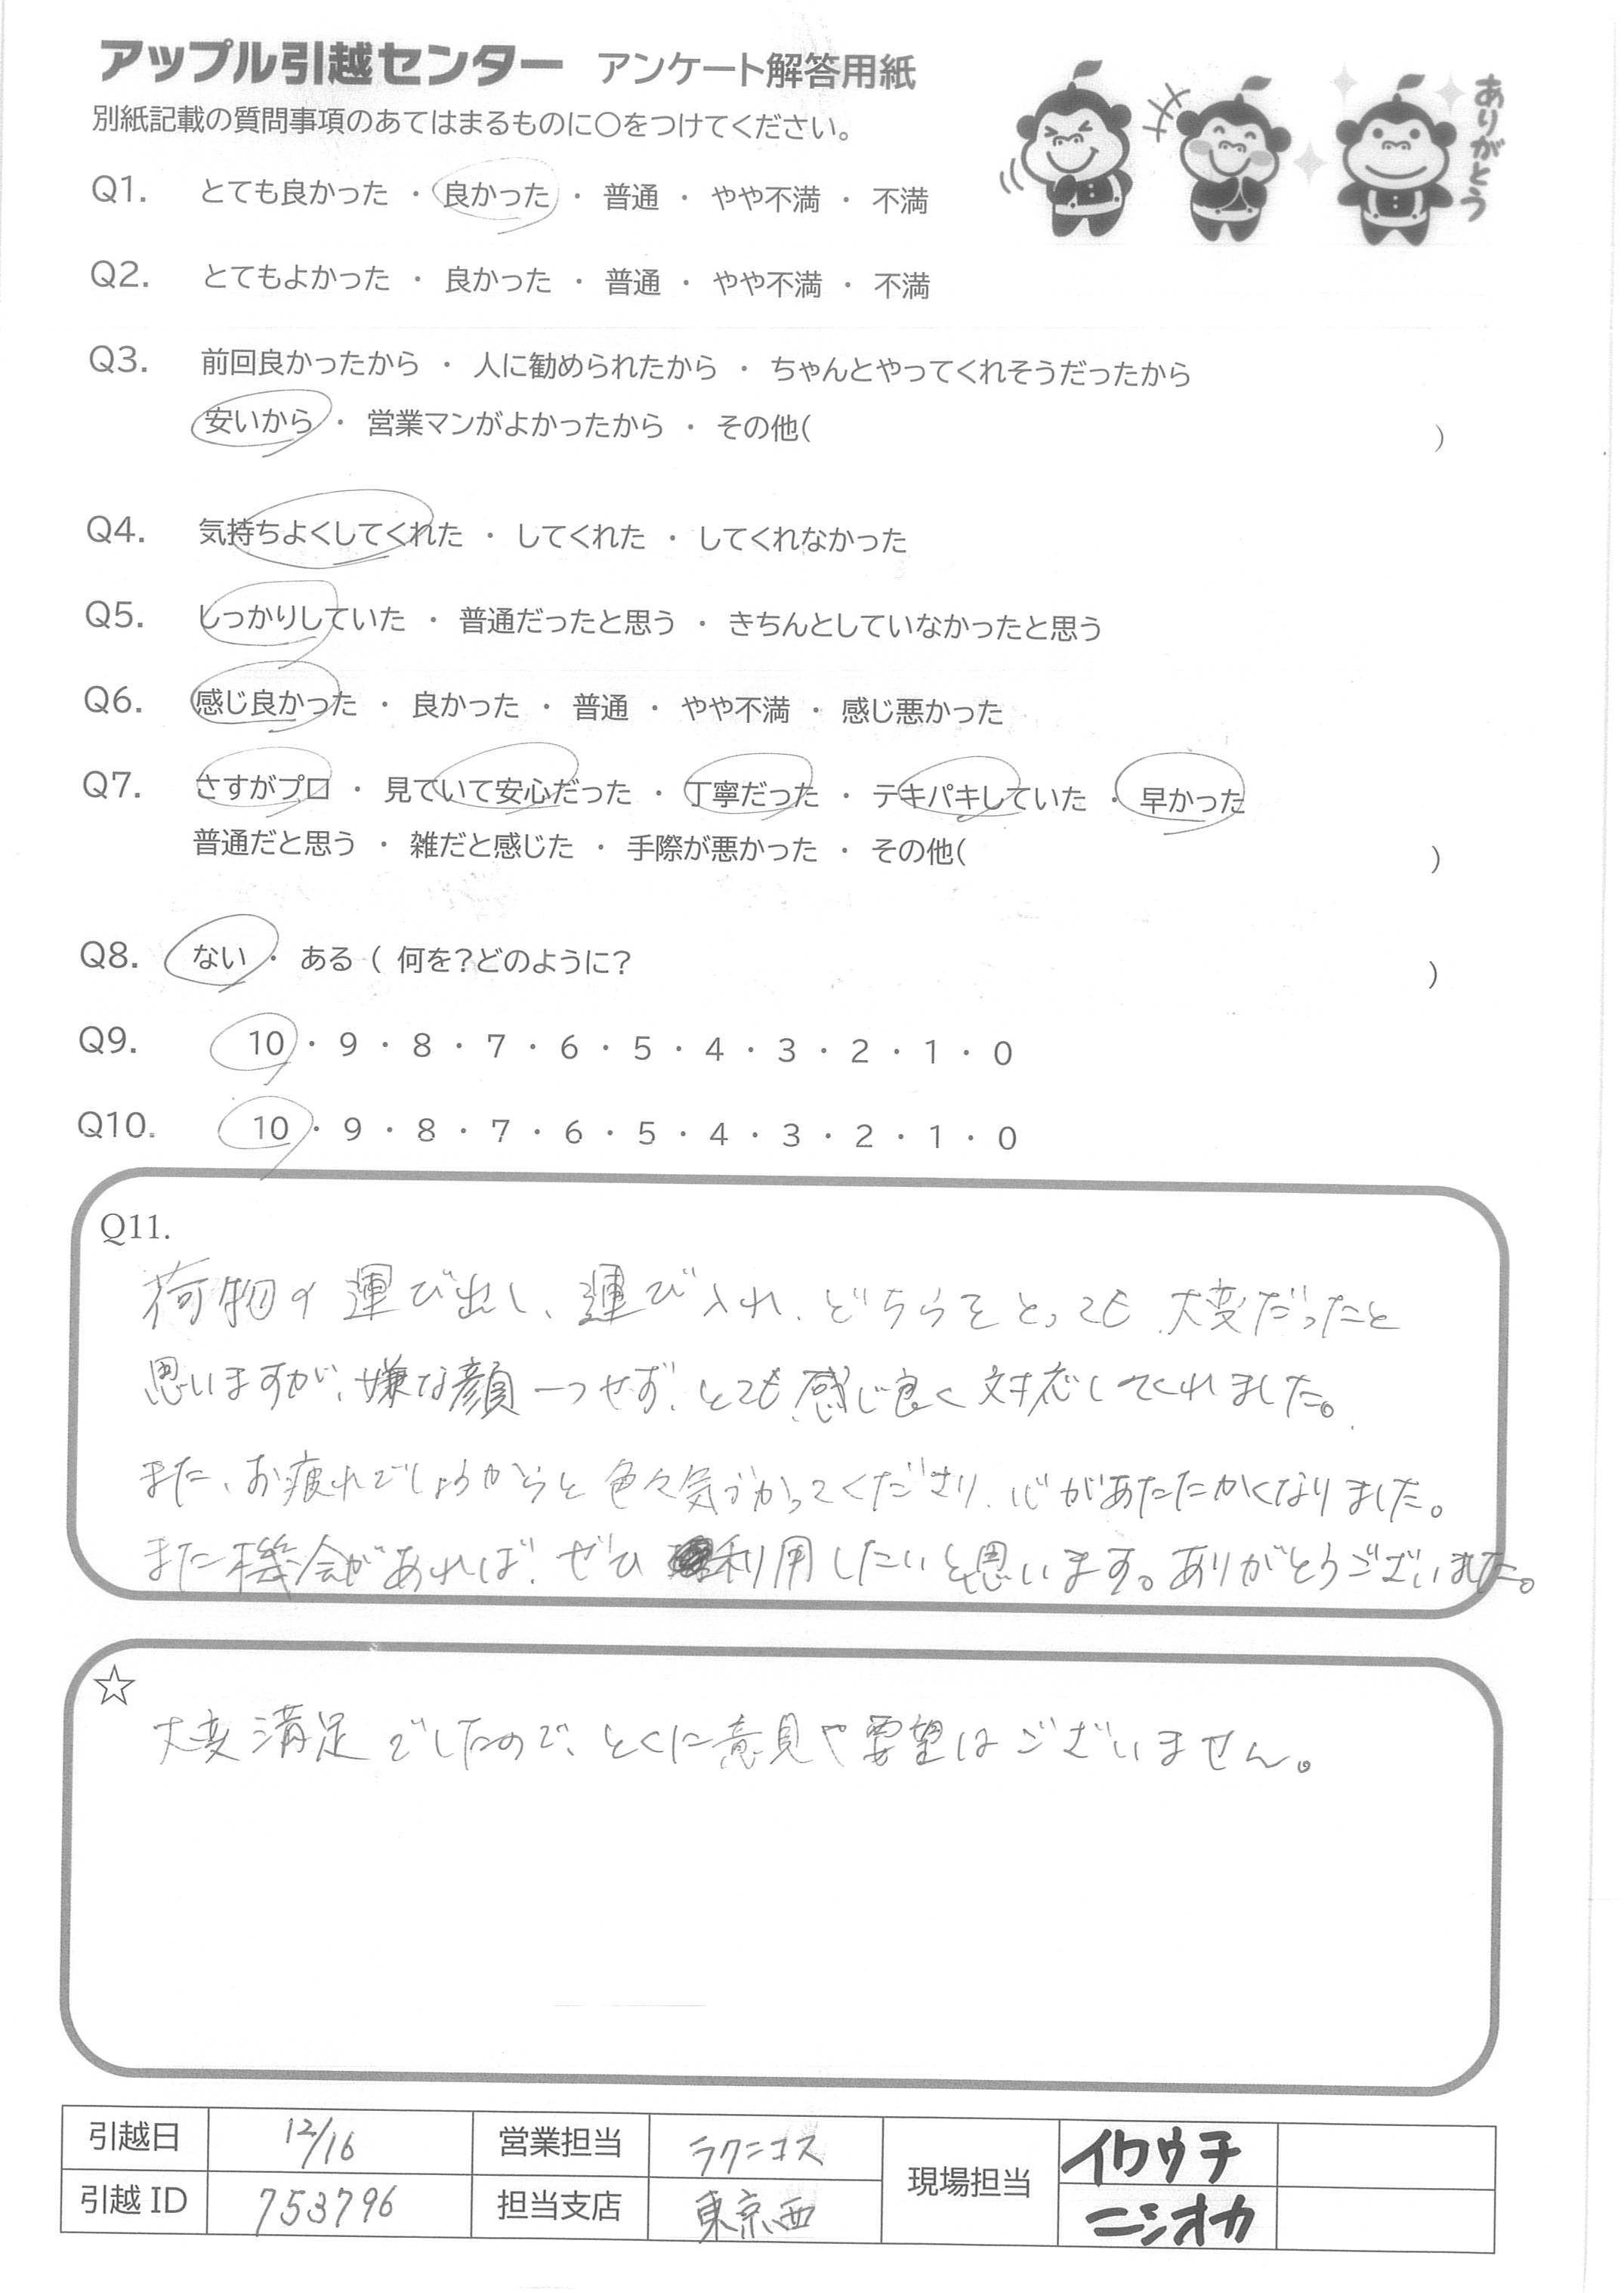 アップル引越センター アンケート解答用紙
別紙記載の質問事項のあてはまるものに○をつけてください。
ありがとう
Q1. とても良かった ・ 良かった ・ 普通 ・ やや不満 ・ 不満
Q2. とてもよかった ・ 良かった ・ 普通 ・ やや不満 ・ 不満
Q3. 前回良かったから ・ 人に勧められたから ・ ちゃんとやってくれそうだったから
安いから ・ 営業マンがよかったから ・ その他( )
Q4. 気持ちよくしてくれた ・ してくれた ・ してくれなかった
Q5. しっかりしていた ・ 普通だったと思う ・ きちんとしていなかったと思う
Q6. 感じ良かった ・ 良かった ・ 普通 ・ やや不満 ・ 感じ悪かった
Q7. さすがプロ ・ 見ていて安心だった ・ 丁寧だった ・ テキパキしていた ・ 早かった
普通だと思う ・ 雑だと感じた ・ 手際が悪かった ・ その他( )
Q8. ない ・ ある ( 何を?どのように? )
Q9. 10 ・ 9 ・ 8 ・ 7 ・ 6 ・ 5 ・ 4 ・ 3 ・ 2 ・ 1 ・ 0
Q10. 10 ・ 9 ・ 8 ・ 7 ・ 6 ・ 5 ・ 4 ・ 3 ・ 2 ・ 1 ・ 0
Q11.
荷物の運び出し、運び入れ、どちらをとっても、大変だったと
思いますが、嫌な顔一つせず、とても感じ良く対応してくれました。
また、お疲れでしょうからと色々気づかってくださり、心があたたかくなりました。
また機会があれば、ぜひ利用したいと思います。ありがとうございました。
☆
大変満足でしたので、とくに意見や要望はございません。
引越日 12/16 営業担当 ラクニコス 現場担当 イワウチ
引越 ID 753796 担当支店 東京西 ニシオカ